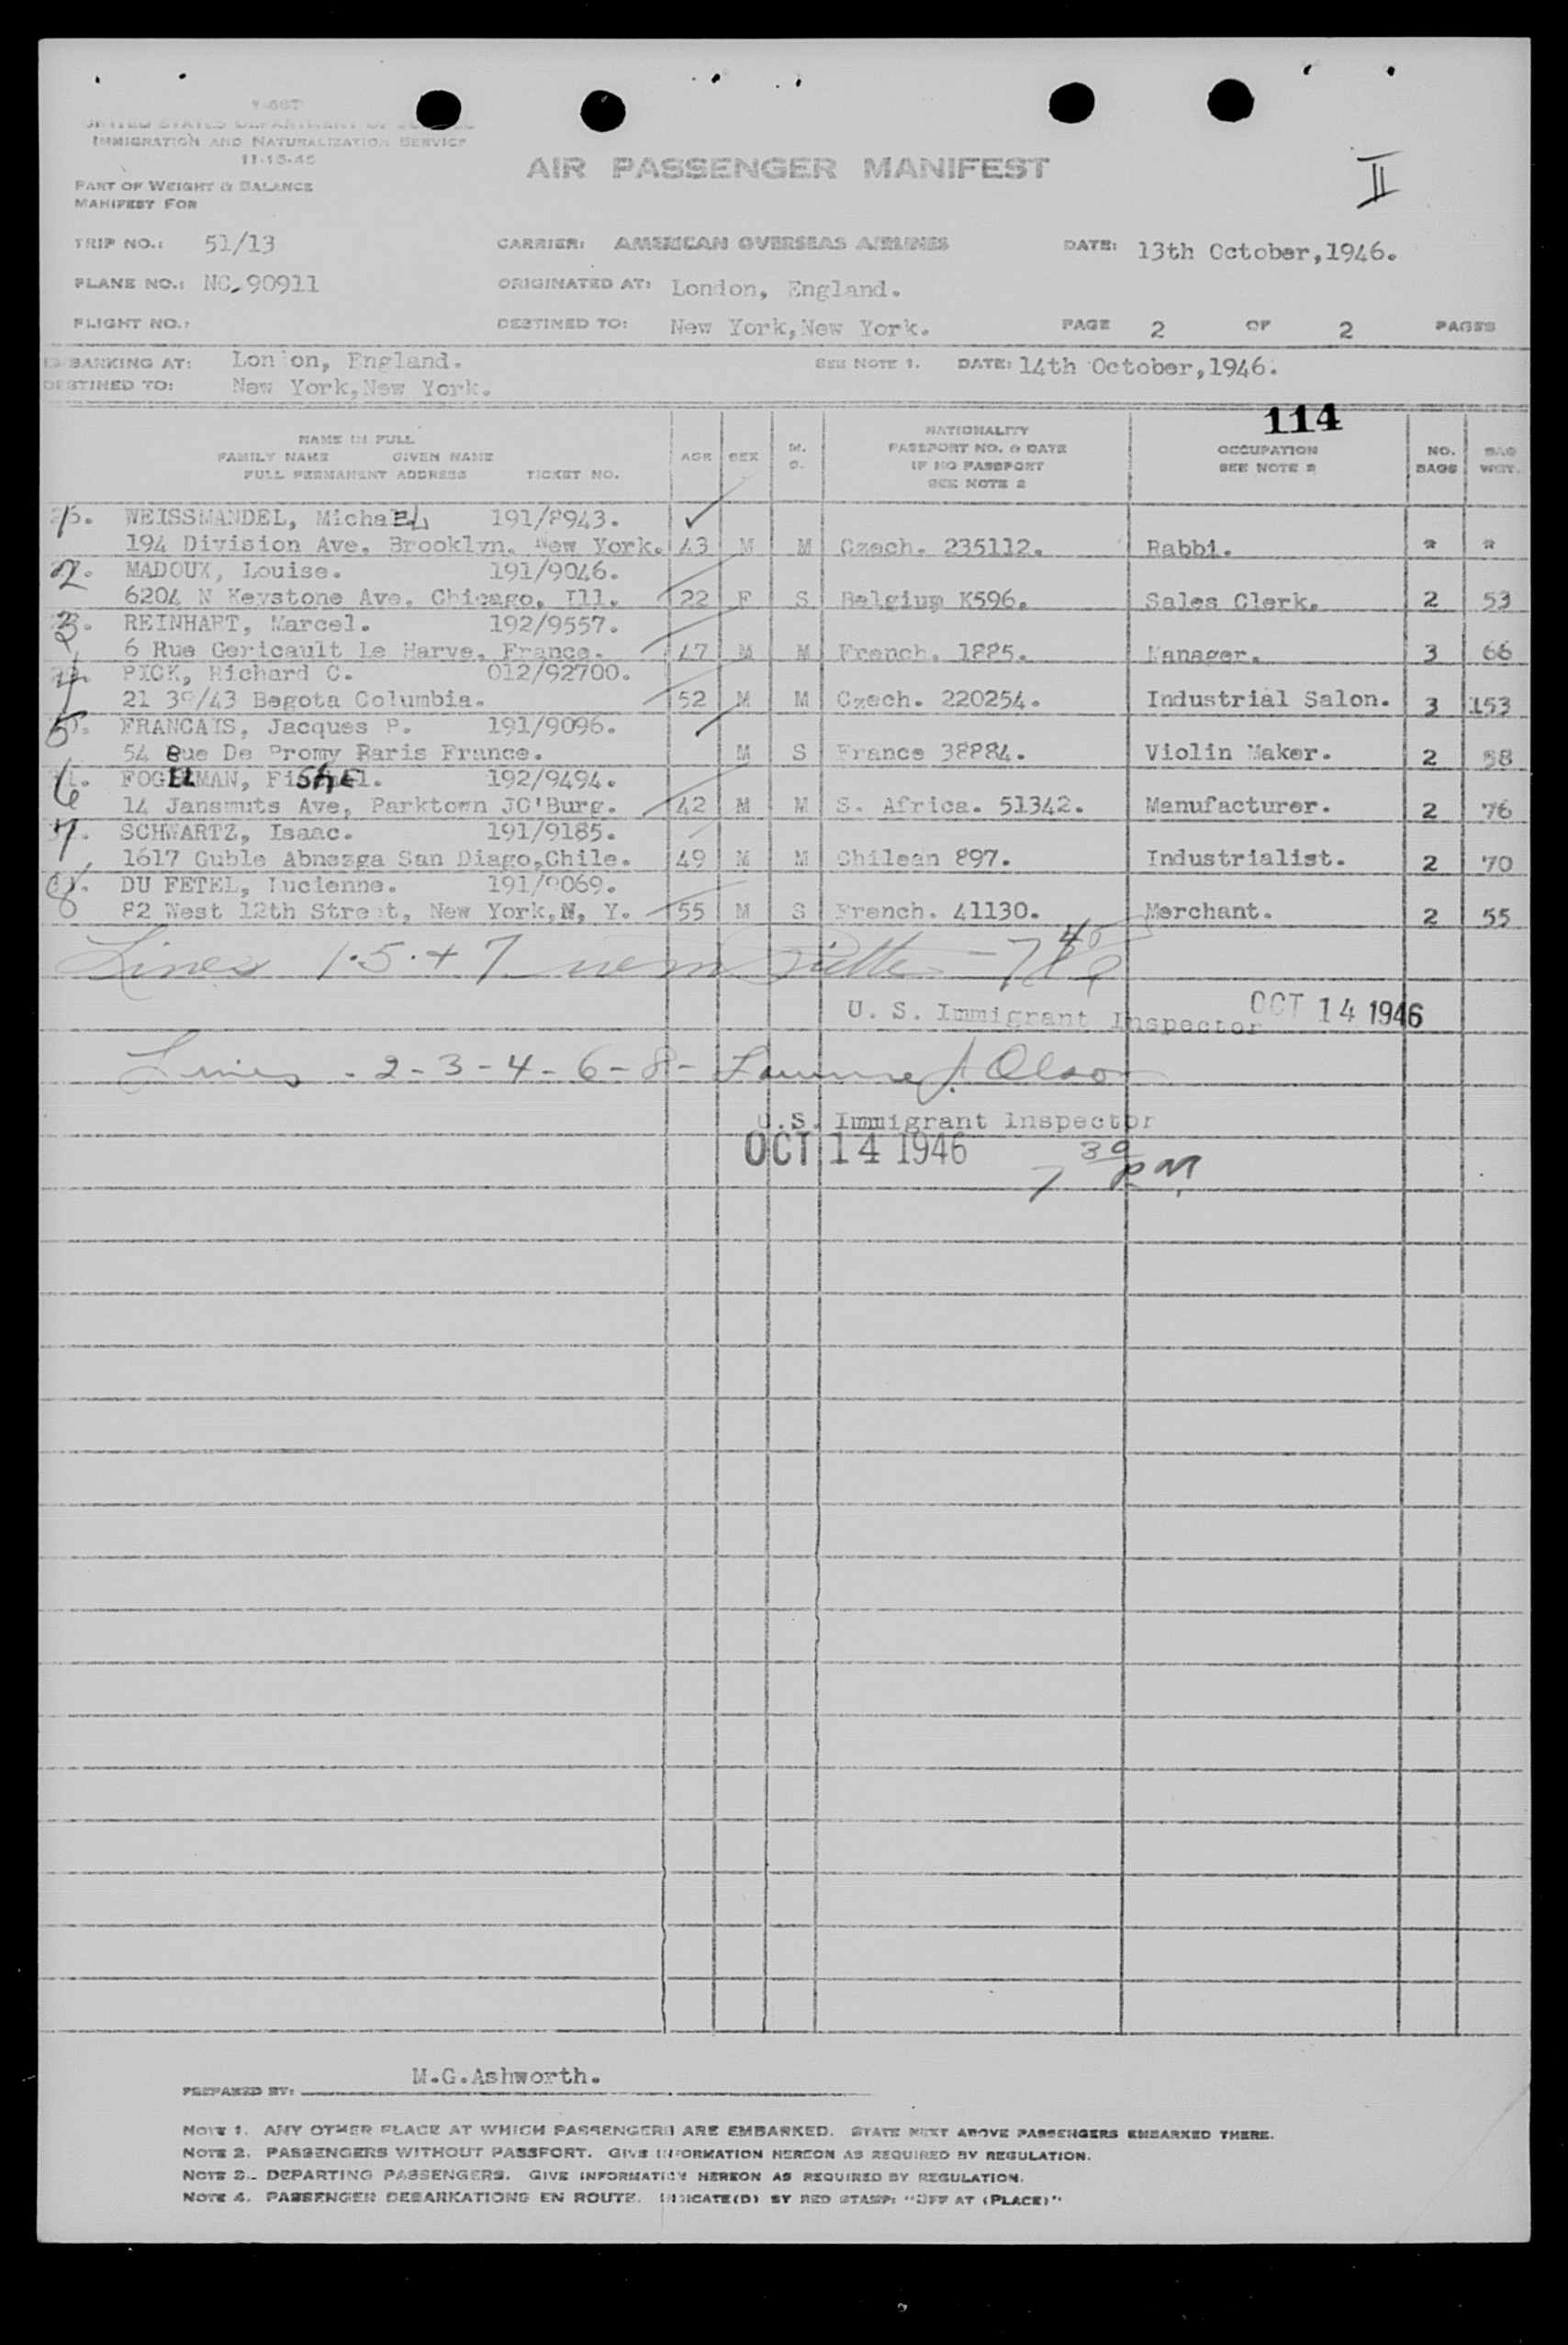 UNITED STATES DEPARTMENT OF JUSTICE
IMMIGRATION AND NATURALIZATION SERVICE
11-15-45
AIR PASSENGER MANIFEST
II
PART OF WEIGHT & BALANCE
MANIFEST FOR
TRIP NO.: 51/13 CARRIER: AMERICAN OVERSEAS AIRLINES DATE: 13th October,1946.
PLANE NO.: NC.90911 ORIGINATED AT: London, England.
FLIGHT NO.: DESTINED TO: New York,New York. PAGE 2 OF 2 PAGES
EMBARKING AT: London, England. SEE NOTE 1. DATE: 14th October,1946.
DESTINED TO: New York,New York.
114
NAME IN FULL
FAMILY NAME GIVEN NAME
FULL PERMANENT ADDRESS TICKET NO.
AGE SEX M. S.
NATIONALITY
PASSPORT NO. & DATE
IF NO PASSPORT
SEE NOTE 2
OCCUPATION
SEE NOTE 2
NO. BAGS
BAG WGT.
1. WEISSMANDEL, MichaEL 191/8943.
194 Division Ave. Brooklyn. New York. 43 M M Czech. 235112. Rabbi. * *
2. MADOUX, Louise. 191/9046.
6204 N Keystone Ave. Chicago, Ill. 22 F S Belgium K596. Sales Clerk. 2 53
3. REINHART, Marcel. 192/9557.
6 Rue Gericault Le Harve. France. 47 M M French. 1885. Manager. 3 66
4. PICK, Richard C. 012/92700.
21 39/43 Begota Columbia. 52 M M Czech. 220254. Industrial Salon. 3 153
5. FRANCAIS, Jacques P. 191/9096.
54 Rue De Promy Paris France. M S France 38884. Violin Maker. 2 58
6. FOGELMAN, FiShEl. 192/9494.
14 Jansmuts Ave, Parktown JO'Burg. 42 M M S. Africa. 51342. Manufacturer. 2 76
7. SCHWARTZ, Isaac. 191/9185.
1617 Guble Abnazga San Diago,Chile. 49 M M Chilean 897. Industrialist. 2 70
8. DU FETEL, Lucienne. 191/9069.
82 West 12th Street, New York,N, Y. 55 M S French. 41130. Merchant. 2 55
Lines 1.5.+ 7
U. S. Immigrant Inspector OCT 14 1946
Lines - 2-3-4-6-8- Lawrence J. Olson
U.S. Immigrant Inspector
OCT 14 1946
7 30 PM
PREPARED BY: M.G.Ashworth.
NOTE 1. ANY OTHER PLACE AT WHICH PASSENGERS ARE EMBARKED. STATE NEXT ABOVE PASSENGERS EMBARKED THERE.
NOTE 2. PASSENGERS WITHOUT PASSPORT. GIVE INFORMATION HEREON AS REQUIRED BY REGULATION.
NOTE 3. DEPARTING PASSENGERS. GIVE INFORMATION HEREON AS REQUIRED BY REGULATION.
NOTE 4. PASSENGER DEBARKATIONS EN ROUTE. INDICATE(D) BY RED STAMP: "OFF AT (PLACE)"